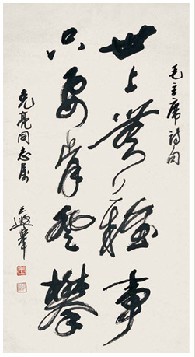 毛主席詩句
世上無難事
只要肯登攀
克亮同志属